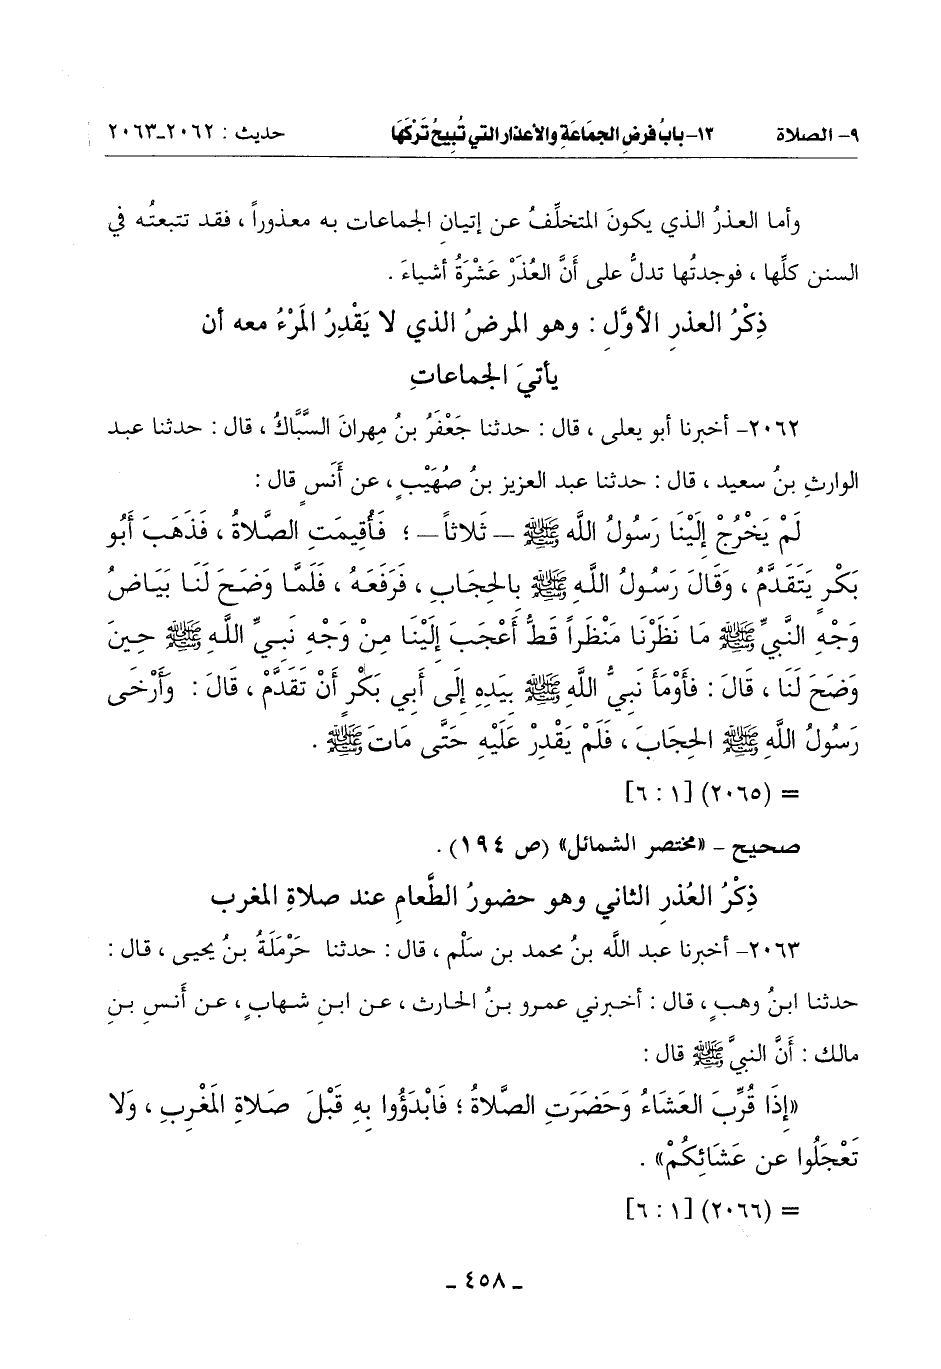 ٩- الصلاة ١٣- بابُ فرضِ الجمَاعَةِ والأعذار التي تُبيحُ تَرْكَهَا حديث : ٢٠٦٢-٢٠٦٣
وأما العذرُ الذي يكونَ المتخلِّفُ عن إتيان الجماعات به معذوراً ، فقد تتبعتُه في
السنن كلِّها ، فوجدتُها تدلُّ على أنَّ العُذَرْ عَشْرَةُ أشياءَ .
ذِكْرُ العذرِ الأوَّل : وهو المرضُ الذي لا يَقْدِرُ المَرْءُ معه أن
يأتيَ الجماعاتِ
٢٠٦٢- أخبرنا أبو يعلى ، قال : حدثنا جَعْفَرُ بنُ مِهرانَ السَّبَّاكُ ، قال : حدثنا عبد
الوارثِ بنُ سعيد ، قال : حدثنا عبد العزيز بنُ صُهَيْبٍ ، عن أَنَسٍ قال :
لَمْ يَخْرُجْ إلَيْنَا رَسُولُ اللَّهِ ﷺ – ثَلاثاً – ؛ فَأُقِيمَتِ الصَّلاةُ ، فَذَهَبَ أَبُو
بَكْرٍ يَتَقَدَّمُ ، وَقَالَ رَسُولُ اللَّهِ ﷺ بالحِجَابِ ، فَرَفَعَهُ ، فَلَمَّا وَضَحَ لَنَا بَيَاضُ
وَجْهِ النَّبِيِّ ﷺ مَا نَظَرْنَا مَنْظَراً قَطُّ أَعْجَبَ إِلَيْنَا مِنْ وَجْهِ نَبيِّ اللَّهِ ﷺ حِينَ
وَضَحَ لَنَا ، قَالَ : فَأَوْمَأَ نَبيُّ اللَّهِ ﷺ بيَدِهِ إِلَى أَبي بَكْرٍ أَنْ تَقَدَّمْ ، قَالَ : وَأَرْخَى
رَسُولُ اللَّهِ ﷺ الحِجَابَ ، فَلَمْ يَقْدِرْ عَلَيْهِ حَتَّى مَاتَ ﷺ .
= (٢٠٦٥) [١ : ٦]
صحيح - «مختصر الشمائل» (ص ١٩٤) .
ذِكْرُ العُذرِ الثاني وهو حضورُ الطَّعامِ عند صلاةِ المغرب
٢٠٦٣- أخبرنا عبد اللَّه بنُ محمد بن سَلْم ، قال : حدثنا حَرْمَلَةُ بنُ يحيى ، قال :
حدثنا ابنُ وهبٍ ، قال : أخبرني عمرو بنُ الحارث ، عن ابنِ شهابٍ ، عن أَنسِ بنِ
مالك : أنَّ النبيَّ ﷺ قال :
«إِذَا قُرِّبَ العَشَاءُ وَحَضَرَتِ الصَّلاةُ ؛ فَابْدَؤُوا بهِ قَبْلَ صَلاةِ المَغْربِ ، وَلا
تَعْجَلُوا عن عَشَائِكُمْ» .
= (٢٠٦٦) [١ : ٦]
- ٤٥٨ -